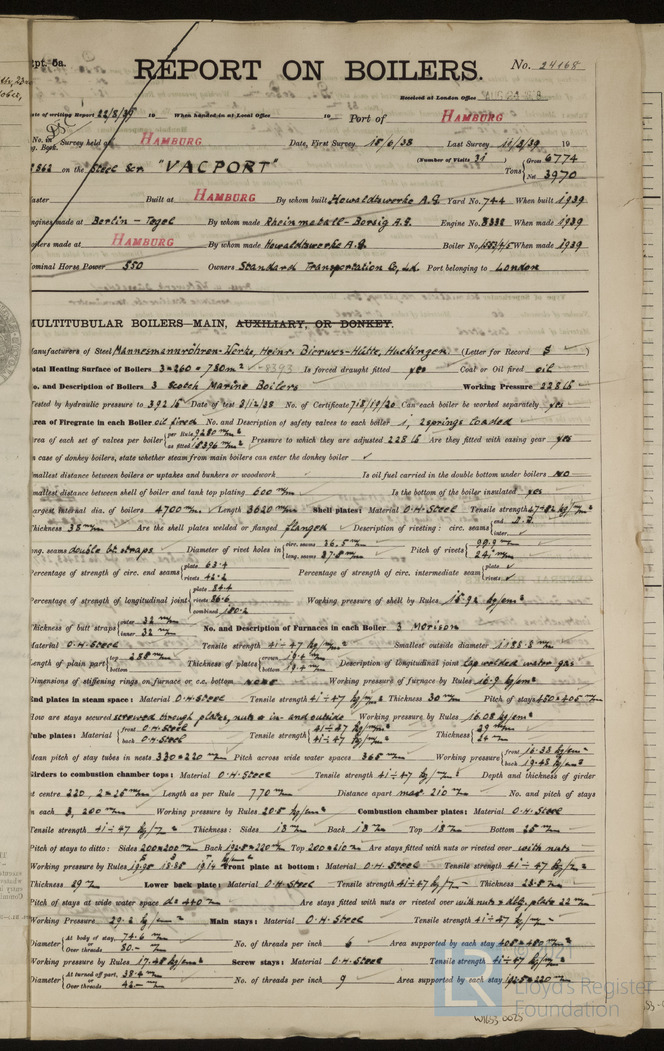 Rpt. 5a.
REPORT ON BOILERS.
No. 24168
Received at London Office
Date of writing Report 22/8/39 19 When handed in at Local Office 19 Port of HAMBURG
No. in Reg. Book. Survey held at HAMBURG Date, First Survey 15/6/38 Last Survey 11/8/39 19
on the Steel Scr "VACPORT" (Number of Visits 31) Tons Gross 6774 Net 3970
Master Built at HAMBURG By whom built Howaldtswerke A.G. Yard No. 744 When built 1939
Engines made at Berlin – Tegel By whom made Rheinmetall-Borsig A.G. Engine No. 8338 When made 1939
Boilers made at HAMBURG By whom made Howaldtswerke A.G. Boiler No. When made 1939
Nominal Horse Power 350 Owners Standard Transportation Co, Ld. Port belonging to London
MULTITUBULAR BOILERS—MAIN, AUXILIARY, OR DONKEY.
Manufacturers of Steel Mannesmannröhren-Werke, Heinr. Bierwes-Hütte, Huckingen (Letter for Record S)
Total Heating Surface of Boilers 3 × 260 = 780 m² 8393 Is forced draught fitted yes Coal or Oil fired oil
No. and Description of Boilers 3 Scotch Marine Boilers Working Pressure 228 lb
Tested by hydraulic pressure to 392 lb Date of test 3/12/38 No. of Certificate 718/19/20 Can each boiler be worked separately yes
Area of Firegrate in each Boiler oil fired No. and Description of safety valves to each boiler 1, 2 springs loaded
Area of each set of valves per boiler per Rule 9280 m/m² as fitted 15396 m/m² Pressure to which they are adjusted 228 lb Are they fitted with easing gear yes
In case of donkey boilers, state whether steam from main boilers can enter the donkey boiler
Smallest distance between boilers or uptakes and bunkers or woodwork Is oil fuel carried in the double bottom under boilers NO
Smallest distance between shell of boiler and tank top plating 600 m/m Is the bottom of the boiler insulated yes
Largest internal dia. of boilers 4700 m/m Length 3620 m/m Shell plates: Material O.H. Steel Tensile strength kg/m/m²
Thickness 35 m/m Are the shell plates welded or flanged flanged Description of riveting: circ. seams end inter.
long. seams double bt straps Diameter of rivet holes in circ. seams 36.5 m/m long. seams 37.8 m/m Pitch of rivets 99.9 m/m 241 m/m
Percentage of strength of circ. end seams plate 63.4 rivets 42.2 Percentage of strength of circ. intermediate seam plate rivets
Percentage of strength of longitudinal joint plate 84.4 rivets 86.6 combined Working pressure of shell by Rules 15.92 kg/cm²
Thickness of butt straps outer 32 m/m inner 32 m/m No. and Description of Furnaces in each Boiler 3 Morison
Material O.H. Steel Tensile strength 41÷47 kg/m/m² Smallest outside diameter 1188.8 m/m
Length of plain part top 258 m/m bottom Thickness of plates crown 19.4 bottom 19.4 m/m Description of longitudinal joint lap welded water gas
Dimensions of stiffening rings on furnace or c.c. bottom none Working pressure of furnace by Rules 16.9 kg/cm²
End plates in steam space: Material O.H. Steel Tensile strength 41÷47 kg/m/m² Thickness 30 m/m Pitch of stays 450×405 m/m
How are stays secured screwed through plates, nuts in- and outside Working pressure by Rules 16.08 kg/cm²
Tube plates: Material front O.H. Steel back O.H. Steel Tensile strength 41÷47 kg/m/m² 41÷47 kg/m/m² Thickness 29 m/m 24 m/m
Mean pitch of stay tubes in nests 330×220 m/m Pitch across wide water spaces 365 m/m Working pressure front 16.33 kg/cm² back 19.45 kg/cm²
Girders to combustion chamber tops: Material O.H. Steel Tensile strength 41÷47 kg/m² Depth and thickness of girder
at centre 220, 2×25 m/m Length as per Rule 770 m/m Distance apart max. 210 m/m No. and pitch of stays
in each 3, 200 m/m Working pressure by Rules 20.5 kg/cm² Combustion chamber plates: Material O.H. Steel
Tensile strength 41÷47 kg/m² Thickness: Sides 18 m/m Back 18 m/m Top 18 m/m Bottom 25 m/m
Pitch of stays to ditto: Sides 200×200 m/m Back 192.5×220 m/m Top 200×210 m/m Are stays fitted with nuts or riveted over with nuts
Working pressure by Rules Front plate at bottom: Material O.H. Steel Tensile strength 41÷47 kg/m²
Thickness 29 m/m Lower back plate: Material O.H. Steel Tensile strength 41÷47 kg/m Thickness 23.5 m/m
Pitch of stays at wide water space d=440 m/m Are stays fitted with nuts or riveted over with nuts & dblg. plate 22 m/m
Working Pressure 29.2 kg/cm² Main stays: Material O.H. Steel Tensile strength 41÷47 kg/m²
Diameter At body of stay, 74.6 m/m or Over threads 80.- m/m No. of threads per inch 6 Area supported by each stay 405×450 m/m²
Working pressure by Rules 17.48 kg/cm² Screw stays: Material O.H. Steel Tensile strength 41÷47 kg/m²
Diameter At turned off part, 38.4 m/m or Over threads 42.- m/m No. of threads per inch 9 Area supported by each stay 192.5×220 m/m
LR
Lloyd's Register
Foundation
W1653-0025